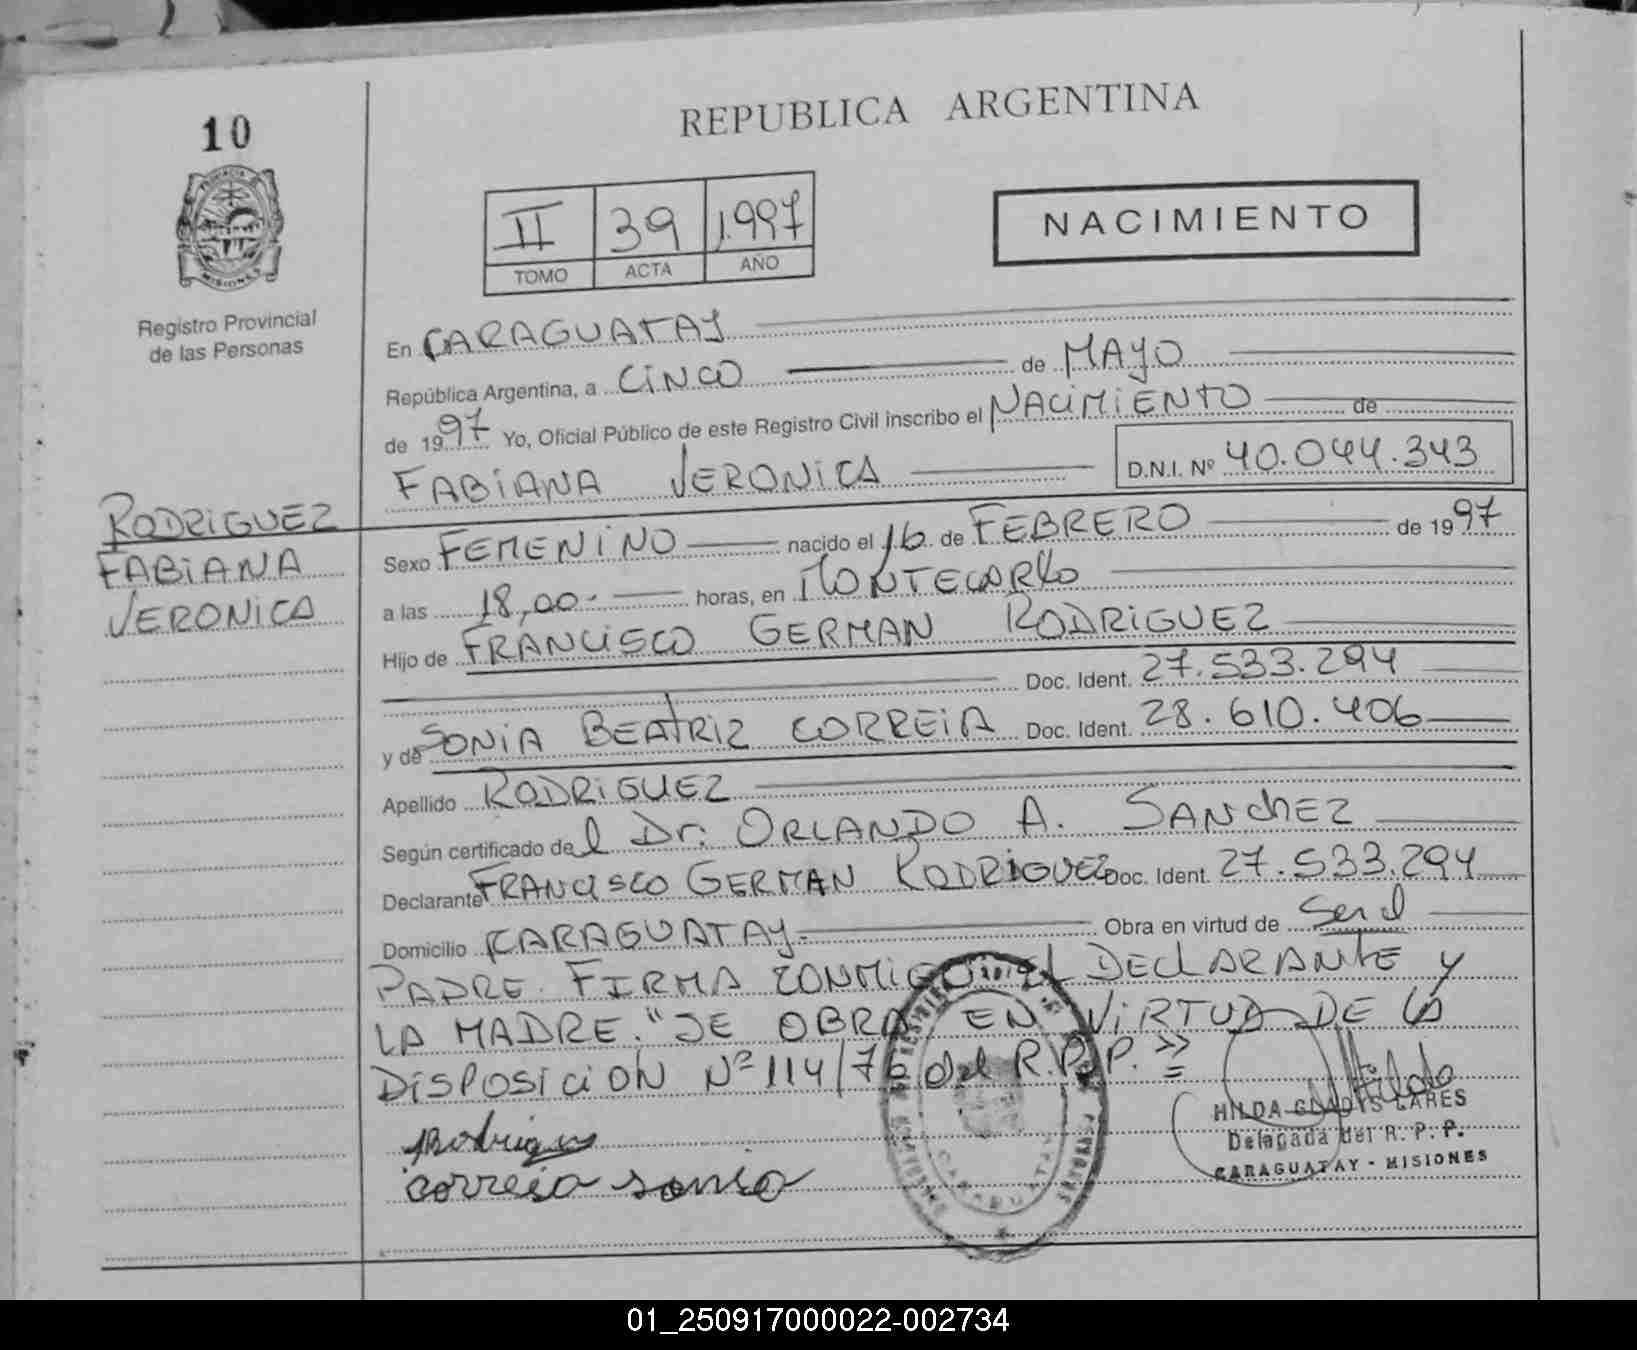 10
PROVINCIA DE
MISIONES
Registro Provincial
de las Personas
REPUBLICA ARGENTINA
II 39 1.997
TOMO ACTA AÑO
NACIMIENTO
En CARAGUATAY
República Argentina, a CINCO de MAYO
de 1997 Yo, Oficial Público de este Registro Civil inscribo el NACIMIENTO de
FABIANA VERONICA D.N.I. Nº 40.044.343
RODRIGUEZ
FABIANA
VERONICA
Sexo FEMENINO nacido el 16 de FEBRERO de 1997
a las 18,00.- horas, en MONTECARLO
Hijo de FRANCISCO GERMAN RODRIGUEZ
Doc. Ident. 27.533.294
y de SONIA BEATRIZ CORREIA Doc. Ident. 28.610.406
Apellido RODRIGUEZ
Según certificado del Dr. ORLANDO A. SANCHEZ
Declarante FRANCISCO GERMAN RODRIGUEZ Doc. Ident. 27.533.294
Domicilio CARAGUATAY.- Obra en virtud de Ser el
PADRE. FIRMA CONMIGO el DECLARANTE y
LA MADRE. "SE OBRA EN VIRTUD DE LA
DISPOSICION Nº 114/76 del R.P.P."=
Rodrigues
correia sonia
HILDA GLADYS LARES
Delegada del R. P. P.
CARAGUATAY - MISIONES
01_250917000022-002734